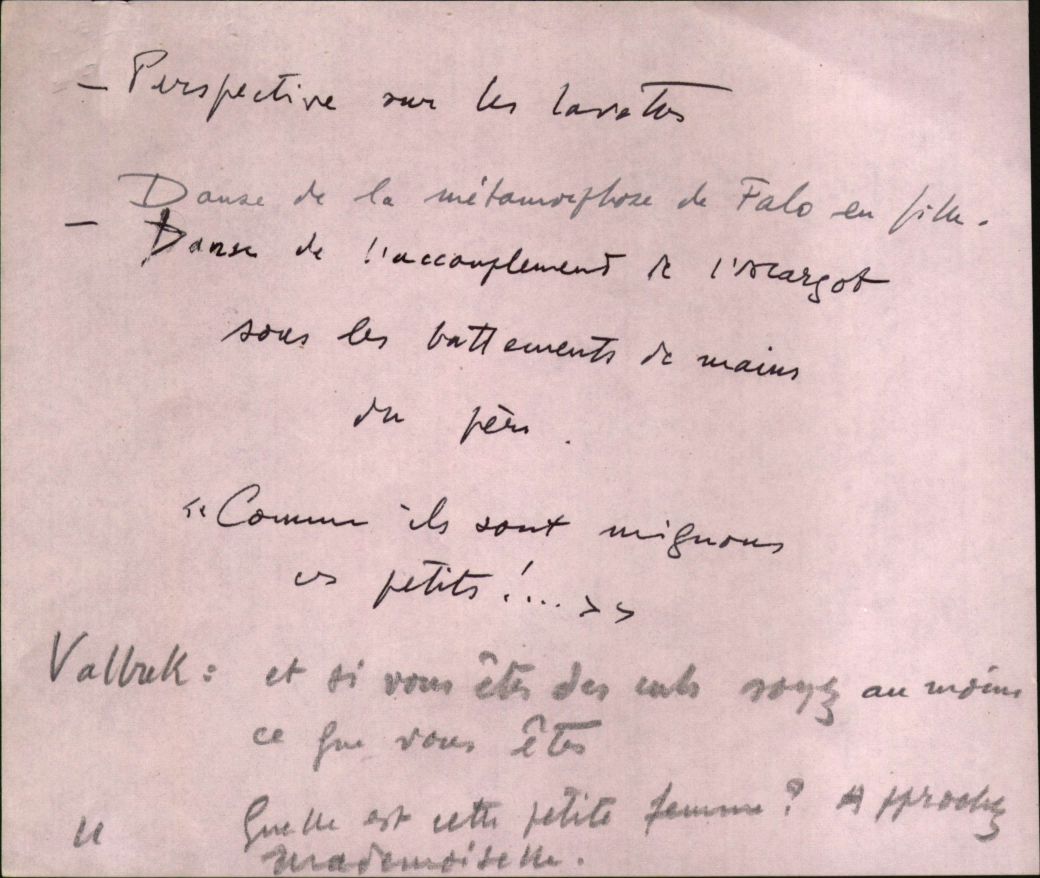 - Perspective sur les lavettes
Danse de la métamorphose de Falo en fille.
- Danse de l'accouplement de l'escargot
sous les battements de mains
du père.
« Comme ils sont mignons
ces petits !... >>
Valbrek : et si vous êtes des culs soyez au moins
ce que vous êtes
" Quelle est cette petite femme ? Approchez
Mademoiselle.